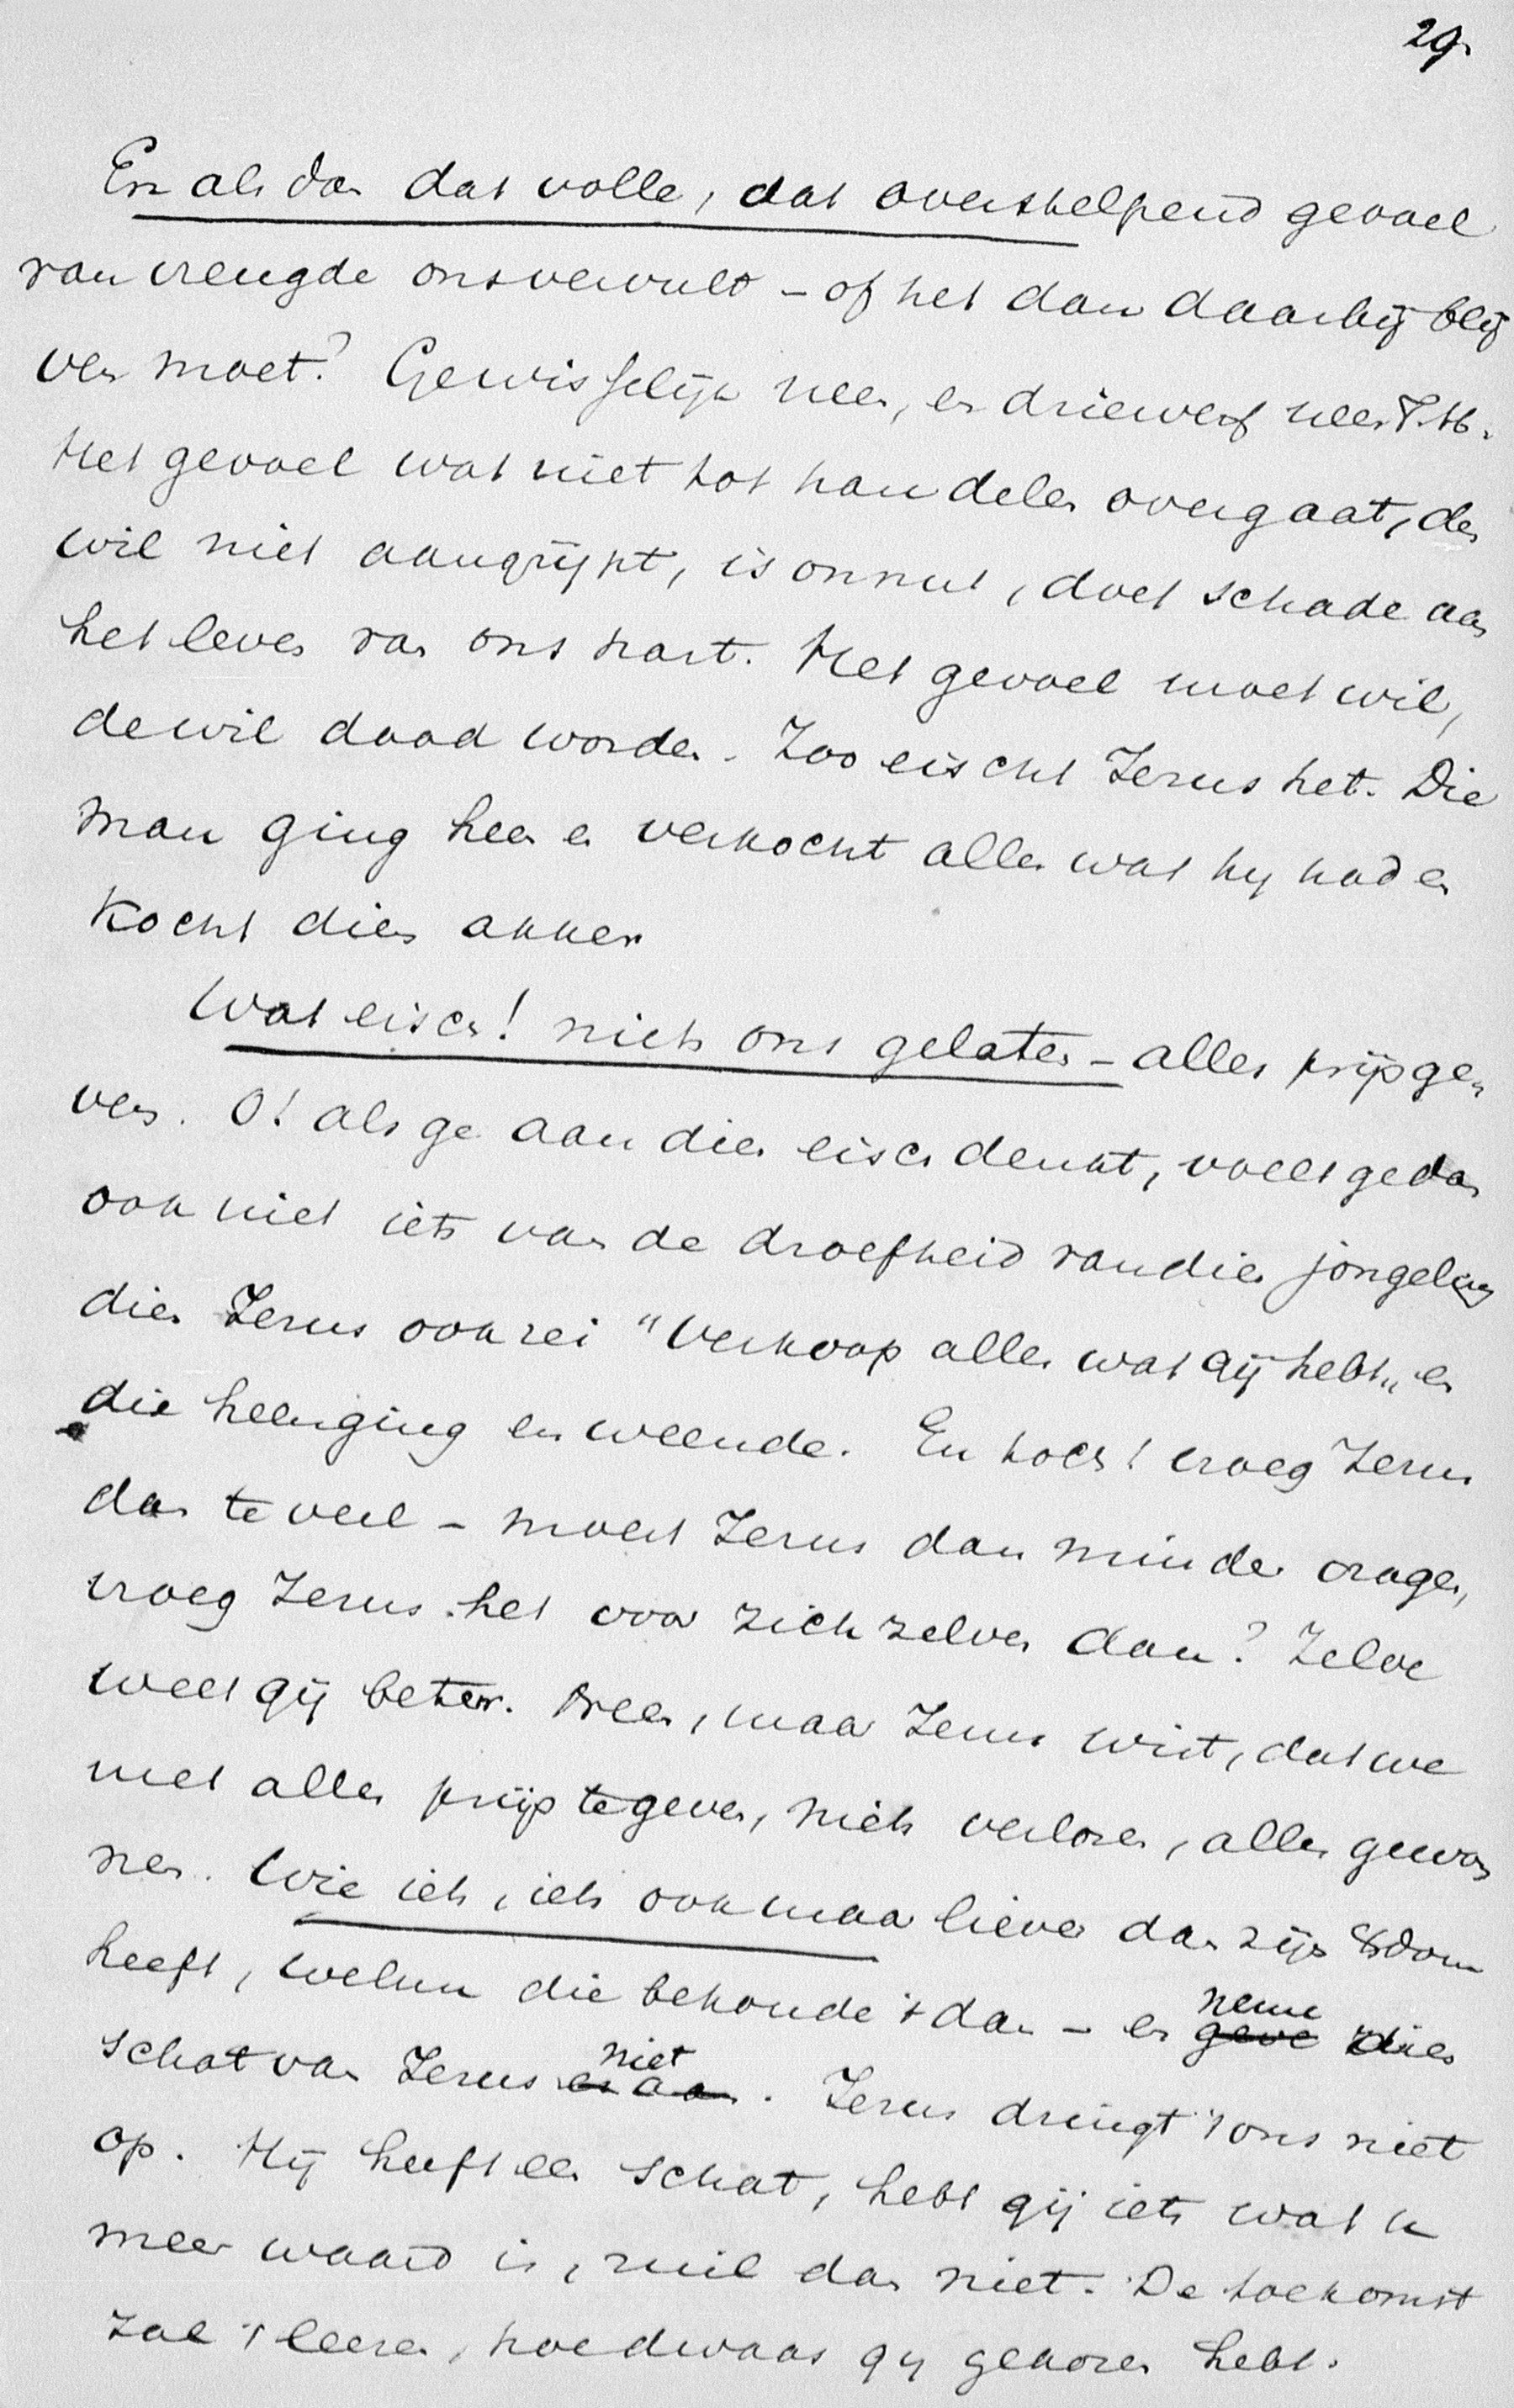 29.
En als dan dat volle, dat overstelpend gevoel
van vreugde ons vervult – of het dan daarbij blij
ven moet? Gewisselijk neen, en driewerf neen T.H.
Het gevoel wat niet tot handelen overgaat, den
wil niet aangrijpt, is onnut, doet schade aan
het leven van ons hart. Het gevoel moet wil,
de wil daad worden. Zoo eischt Jezus het. Die
man ging heen en verkocht alles wat hy had en
kocht dien akker
Wat eisch! niets ons gelaten – alles prijsge„
ven. O! als ge aan dien eisch denkt, voelt ge dan
ook niet iets van de droefheid van dien jongeling
dien Jezus ook zei "Verkoop alles wat gij hebt„ en
die heenging en weende. En toch! vroeg Jezus
dan te veel – moest Jezus dan minder vragen,
vroeg Jezus het voor zich zelven dan? Zelve
weet gij beter. Neen, maar Jezus wist, dat we
met alles prijs te geven, niets verloren, alles gewon
nen. Wie iets, iets ook maar liever dan zijn Gddom
heeft, welnu die behoude 't dan – en neme geve dien
schat van Jezus niet en aan. Jezus dringt 't ons niet
op. Hij heeft een schat, hebt gij iets wat u
meer waard is, ruil dan niet. De toekomst
zal 't leeren, hoe dwaas gy gekozen hebt.